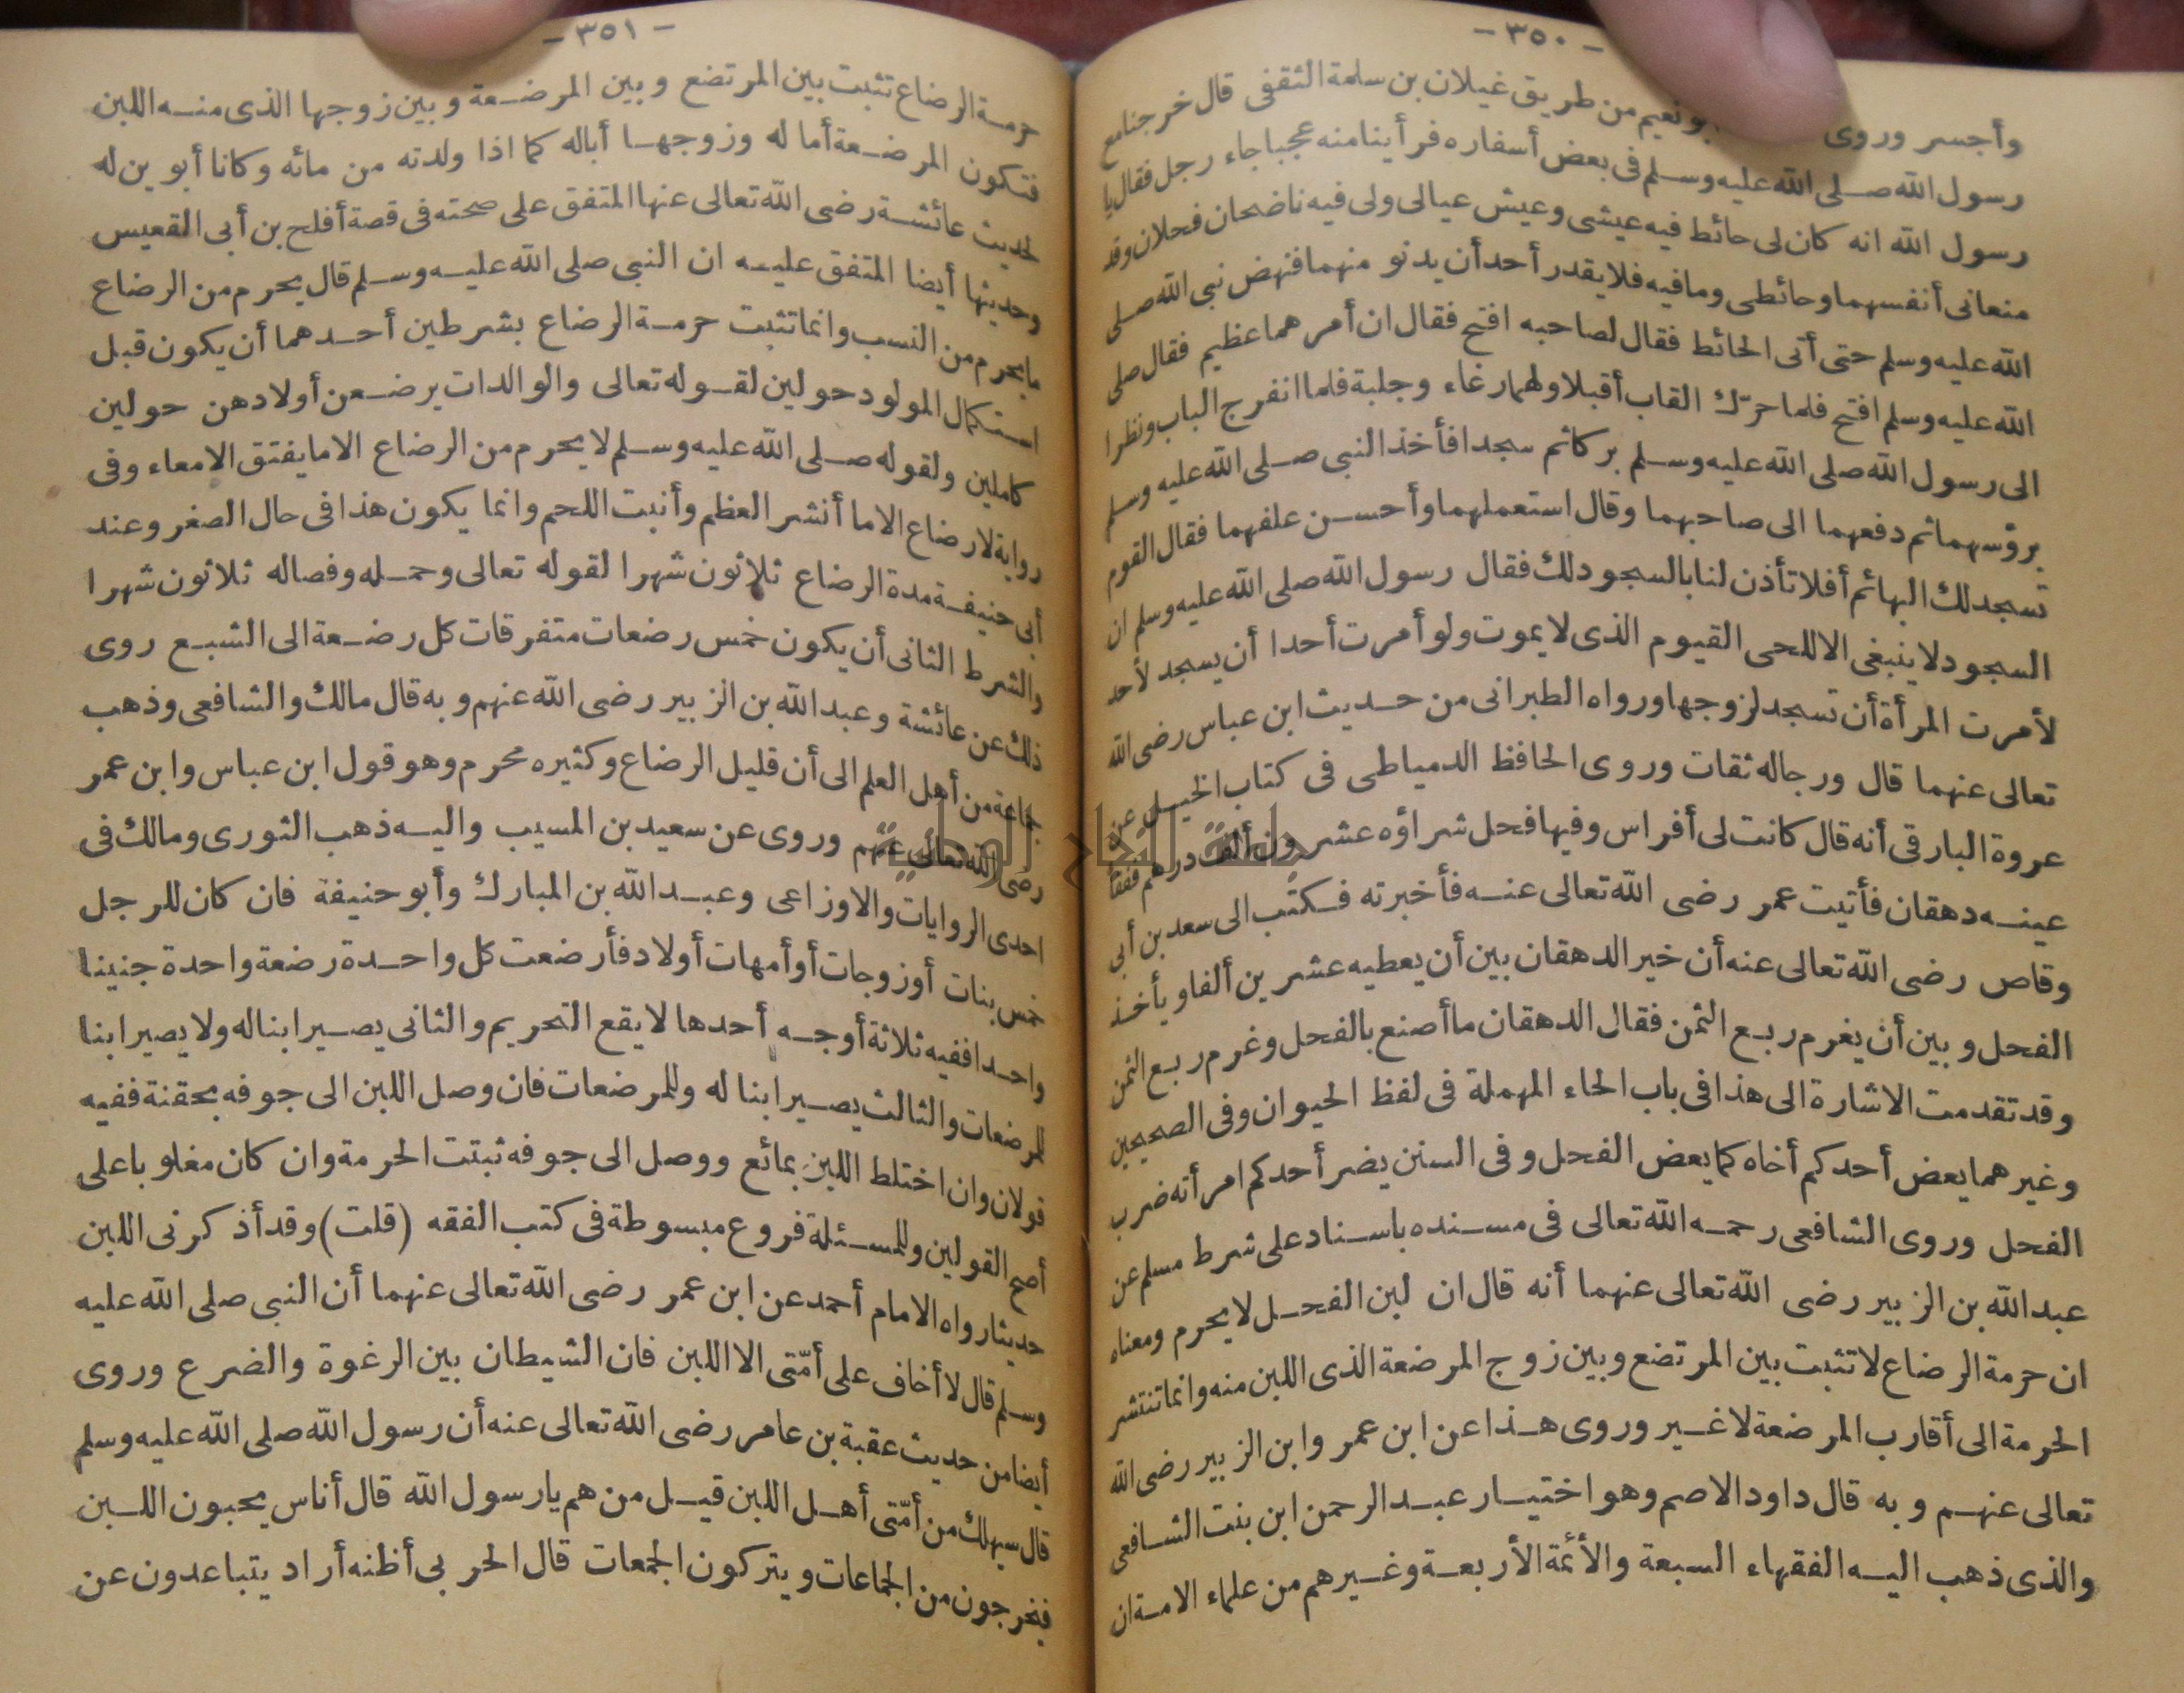 - ٣٥٠ -
وأجسر وروى نعيم من طريق غيلان بن سلمة الثقفى قال خرجنا مع
رسول الله صلى الله عليه وسلم فى بعض أسفاره فرأينا منه عجبا جاء رجل فقال يا
رسول الله انه كان لى حائط فيه عيشى وعيش عيالى ولى فيه ناضحان فحلان وقد
منعانى أنفسهما وحائطى ومافيه فلا يقدر أحد أن يدنو منهما فنهض نبى الله صلى
الله عليه وسلم حتى أتى الحائط فقال لصاحبه افتح فقال ان أمرهما عظيم فقال صلى
الله عليه وسلم افتح فلما حرّك الباب أقبلا ولهما رغاء وجلبة فلما انفرج الباب ونظرا
الى رسول الله صلى الله عليه وسلم بركا ثم سجدا فأخذ النبى صلى الله عليه وسلم
برؤسهما ثم دفعهما الى صاحبهما وقال استعملهما وأحسن علفهما فقال القوم
تسجد لك البهائم أفلا تأذن لنا بالسجود لك فقال رسول الله صلى الله عليه وسلم ان
السجود لا ينبغى الا للحى القيوم الذى لا يموت ولو أمرت أحدا أن يسجد لأحد
لأمرت المرأة أن تسجد لزوجها ورواه الطبرانى من حديث ابن عباس رضى الله
تعالى عنهما قال ورجاله ثقات وروى الحافظ الدمياطى فى كتاب الخيل عن
عروة البارقى أنه قال كانت لى أفراس وفيها فحل شراؤه عشرون ألف درهم ففقأ
عينه دهقان فأتيت عمر رضى الله تعالى عنه فأخبرته فكتب الى سعد بن أبى
وقاص رضى الله تعالى عنه أن خير الدهقان بين أن يعطيه عشرين ألفا ويأخذ
الفحل وبين أن يغرم ربع الثمن فقال الدهقان ما أصنع بالفحل وغرم ربع الثمن
وقد تقدمت الاشارة الى هذا فى باب الحاء المهملة فى لفظ الحيوان وفى الصحيحين
وغيرهما يعض أحدكم أخاه كما يعض الفحل وفى السنن يضر أحدكم امرأته ضرب
الفحل وروى الشافعى رحمه الله تعالى فى مسنده باسناد على شرط مسلم عن
عبد الله بن الزبير رضى الله تعالى عنهما أنه قال ان لبن الفحل لا يحرم ومعناه
ان حرمة الرضاع لا تثبت بين المرتضع وبين زوج المرضعة الذى اللبن منه وانما تنتشر
الحرمة الى أقارب المرضعة لا غير وروى هذا عن ابن عمر وابن الزبير رضى الله
تعالى عنهم وبه قال داود الاصم وهو اختيار عبد الرحمن ابن بنت الشافعى
والذى ذهب اليه الفقهاء السبعة والأئمة الأربعة وغيرهم من علماء الامة ان
- ٣٥١ -
حرمة الرضاع تثبت بين المرتضع وبين المرضعة وبين زوجها الذى منه اللبن
فتكون المرضعة أما له وزوجها أبا له كما اذا ولدته من مائه وكانا أبوين له
لحديث عائشة رضى الله تعالى عنها المتفق على صحته فى قصة أفلح بن أبى القعيس
وحديثها أيضا المتفق عليه ان النبى صلى الله عليه وسلم قال يحرم من الرضاع
ما يحرم من النسب وانما تثبت حرمة الرضاع بشرطين أحدهما أن يكون قبل
استكمال المولود حولين لقوله تعالى والوالدات يرضعن أولادهن حولين
كاملين ولقوله صلى الله عليه وسلم لا يحرم من الرضاع الا ما يفتق الامعاء وفى
رواية لا رضاع الا ما أنشر العظم وأنبت اللحم وانما يكون هذا فى حال الصغر وعند
أبى حنيفة مدة الرضاع ثلاثون شهرا لقوله تعالى وحمله وفصاله ثلاثون شهرا
والشرط الثانى أن يكون خمس رضعات متفرقات كل رضعة الى الشبع روى
ذلك عن عائشة وعبد الله بن الزبير رضى الله عنهم وبه قال مالك والشافعى وذهب
جماعة من أهل العلم الى أن قليل الرضاع وكثيره محرم وهو قول ابن عباس وابن عمر
رضى الله تعالى عنهم وروى عن سعيد بن المسيب واليه ذهب الثورى ومالك فى
احدى الروايات والاوزاعى وعبد الله بن المبارك وأبو حنيفة فان كان للرجل
خمس بنات أو زوجات أو أمهات أولاد فأرضعت كل واحدة رضعة واحدة جنينا
واحدا ففيه ثلاثة أوجه أحدها لا يقع التحريم والثانى يصير ابنا له ولا يصير ابنا
للمرضعات والثالث يصير ابنا له وللمرضعات فان وصل اللبن الى جوفه بحقنة ففيه
قولان وان اختلط اللبن بمائع ووصل الى جوفه ثبتت الحرمة وان كان مغلوبا على
أصح القولين وللمسئلة فروع مبسوطة فى كتب الفقه (قلت) وقد أذكرنى اللبن
حديثا رواه الامام أحمد عن ابن عمر رضى الله تعالى عنهما أن النبى صلى الله عليه
وسلم قال لا أخاف على أمّتى الا اللبن فان الشيطان بين الرغوة والضرع وروى
أيضا من حديث عقبة بن عامر رضى الله تعالى عنه أن رسول الله صلى الله عليه وسلم
قال سيهلك من أمّتى أهل اللبن قيل من هم يا رسول الله قال أناس يحبون اللبن
فيخرجون من الجماعات ويتركون الجمعات قال الحربى أظنه أراد يتباعدون عن
جامعة النجاح الوطنية